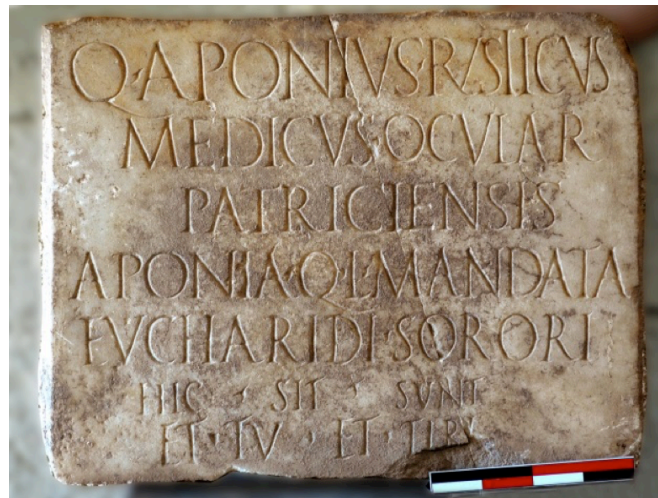 Q·APONIVS·RVSTICVS
MEDICVS·OCVLAR
PATRICIENSIS
APONIA·Q·L·MANDATA
EVCHARIDI·SORORI
HIC · SIT · SVNT
ET·TV · ET·TIBI